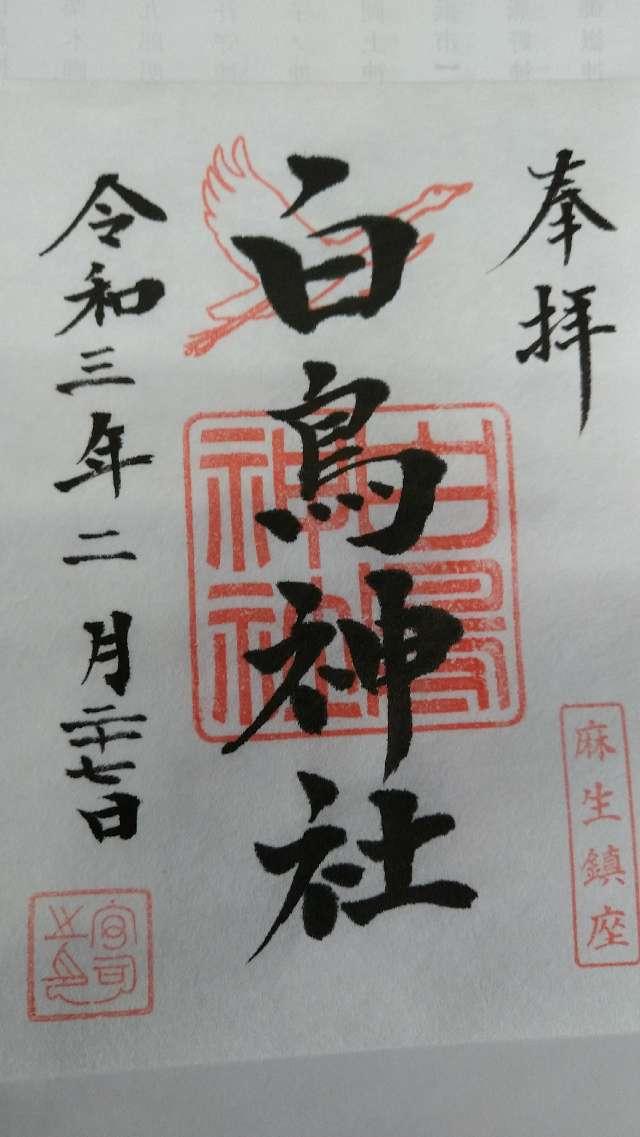 奉拝
麻生鎮座
白鳥神社
白鳥
神社
令和三年二月二十七日
宮司
之印